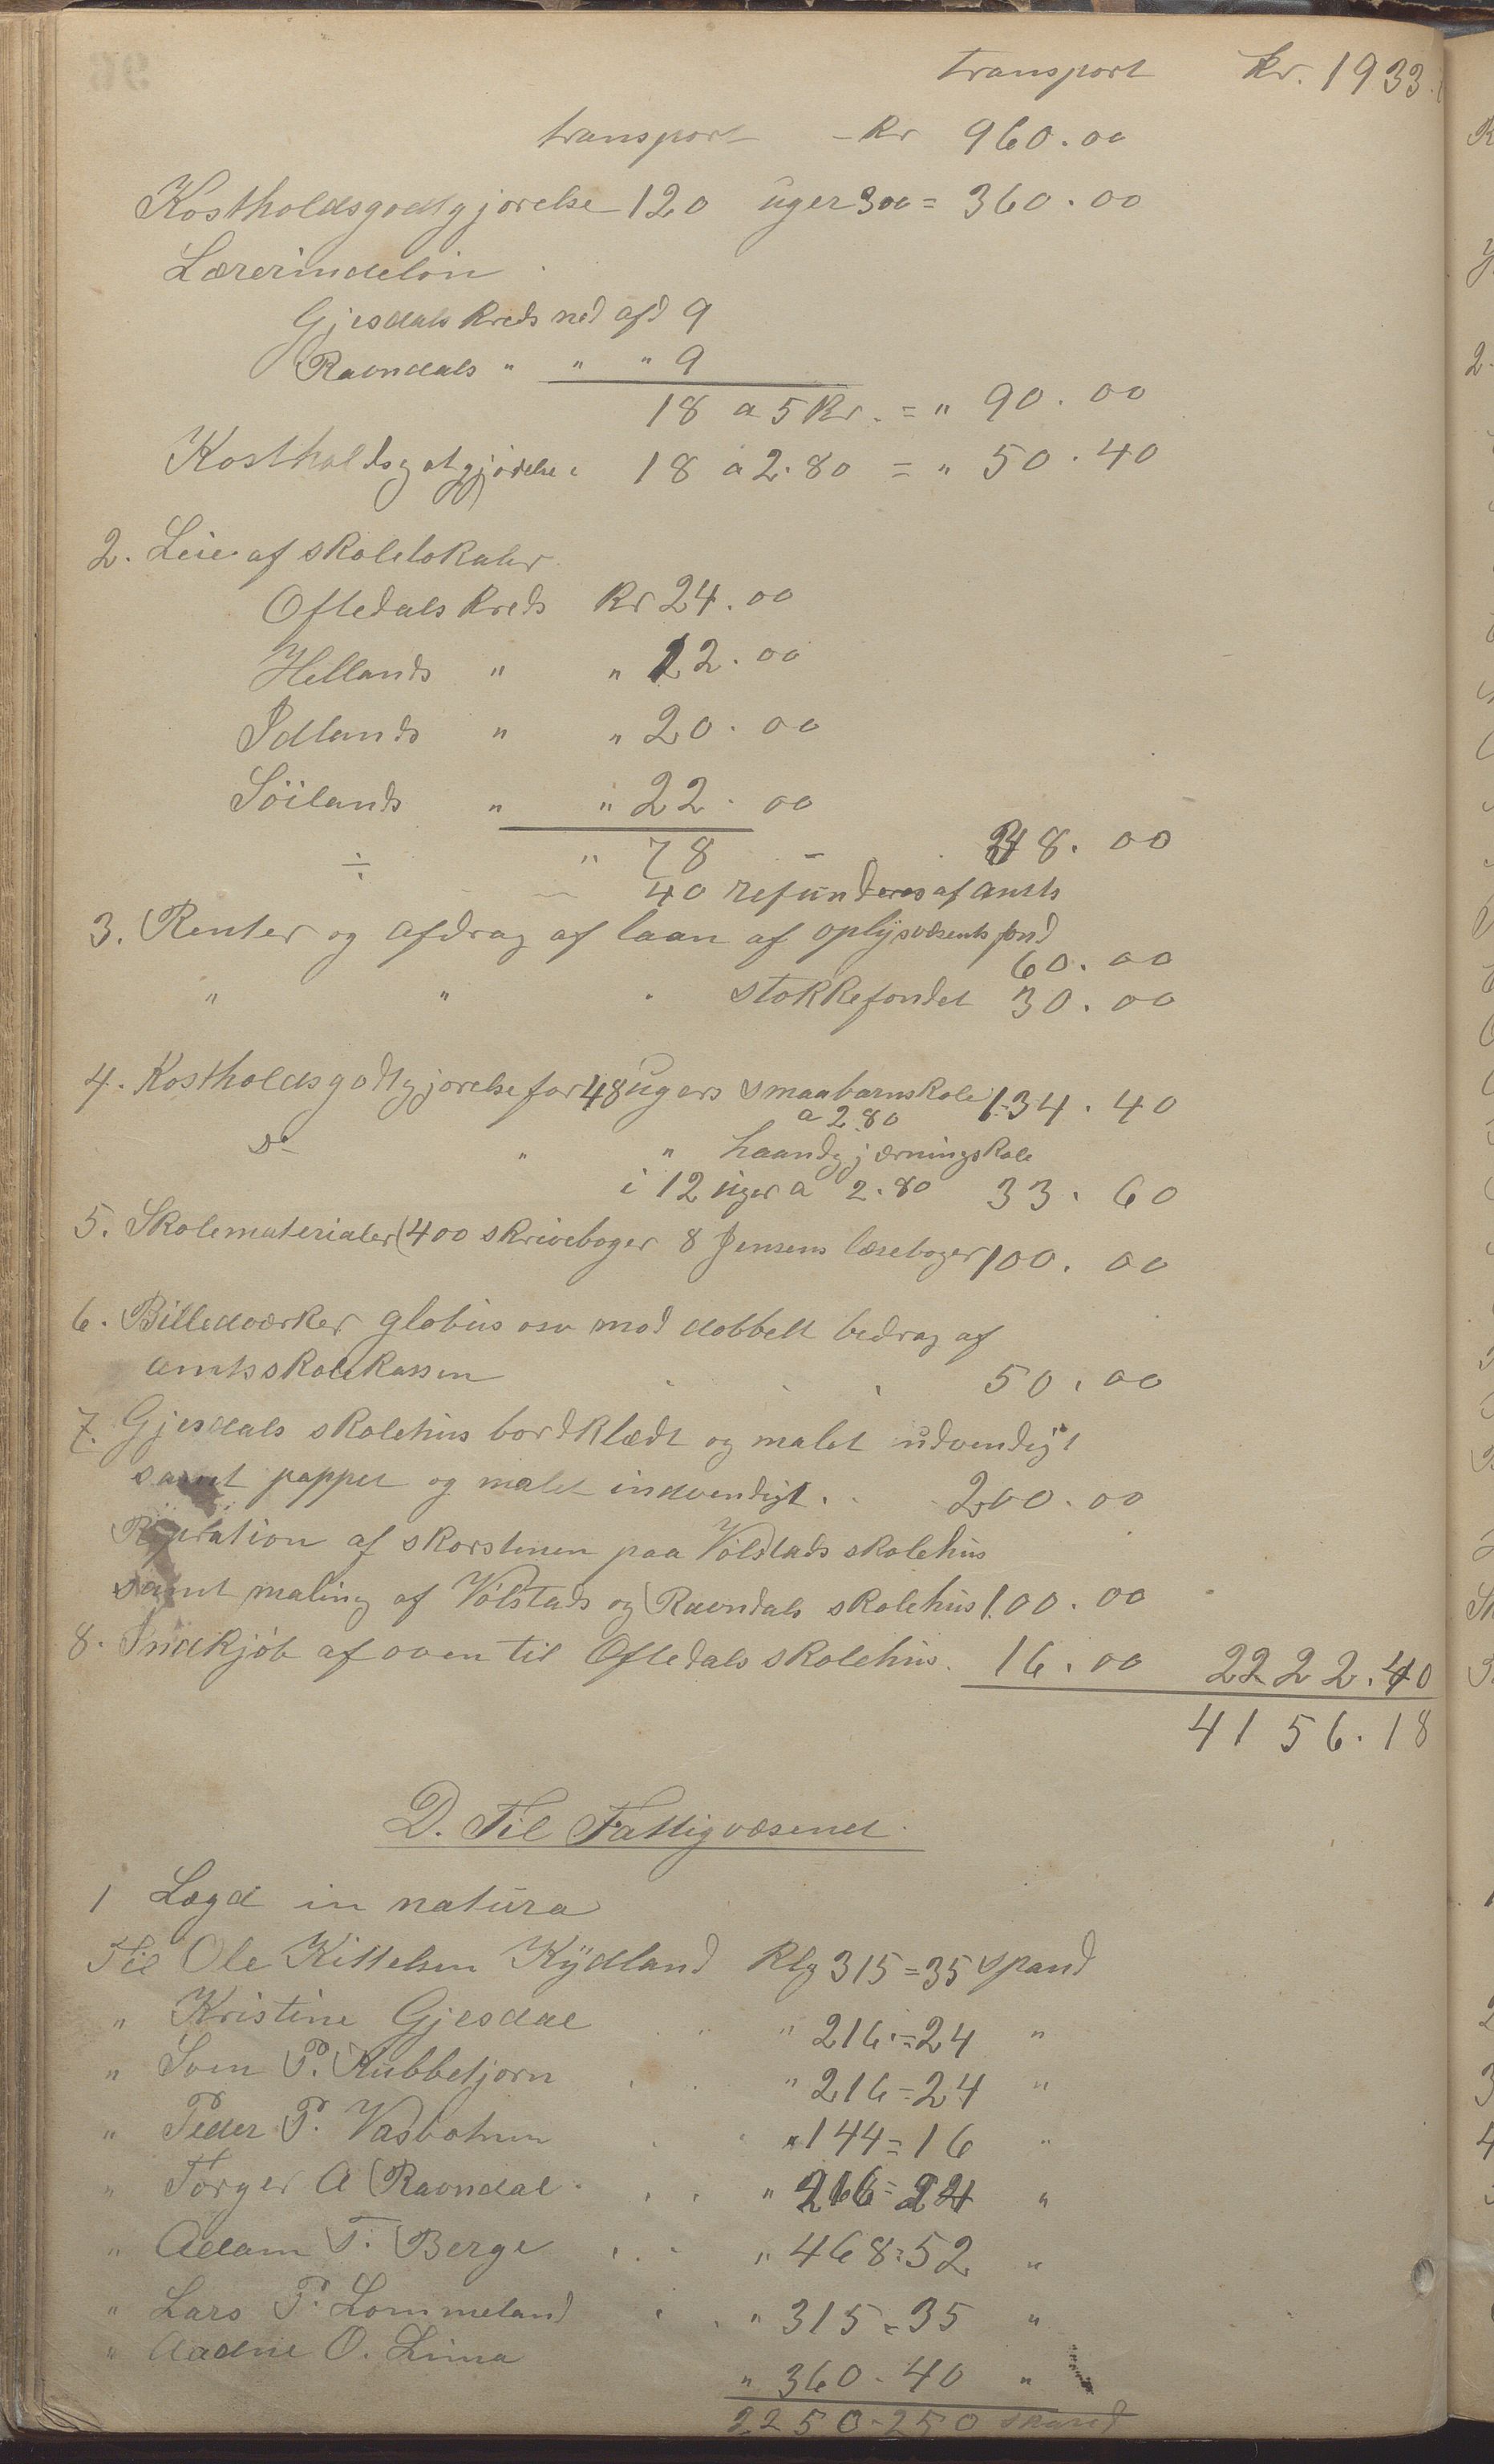 transport Kr. 1933.
transport - Kr 960.00
Kostholdsgodtgjørelse 120 uger 300 = 360.00
Lærerindeløn
Gjesdals Kreds ned afd 9
Ravndals " " " 9
18 a 5 Kr. = " 90.00
Kostholdsgotgjørelse 18 a 2.80 = " 50.40
2. Leie af skolelokaler
Oftedals Kreds Kr 24.00
Hellands " " 12.00
Idlands " " 20.00
Søilands " " 22.00
÷ " 78 - 38.00
40 refunderes af amts
3. Renter og afdrag af laan af oplysvæsents fond
60.00
" " " stokkefondet 30.00
4. Kostholdsgodtgjørelse for 48 ugers smaabarnskole 134.40
a 2.80
Do " " haandgjærningskole
i 12 uger a 2.80 33.60
5. Skolematerialer (400 skrivebøger 8 Jensens læsebøger 100.00
6. Billedværker globus osv mod dobbelt bedrag af
amtsskolekassen 50.00
7. Gjesdals skolehus bordklædt og malet udvendigt
samt pappet og malet indvendigt. 200.00
Repration af skorstenen paa Vølstads skolehus
samt maling af Vølstads og Ravndals skolehus 100.00
8. Indkjøb af oven til Oftedals skolehus. 16.00 2222.40
4156.18
D. Til Fattigvæsenet.
1 Lægd in natura
Til Ole Kittelsen Kydland Klg 315 = 35 spand
" Kristine Gjesdal " 216 = 24 "
" Sven P. Kubbetjorn " 216 = 24 "
" Peder P. Vasbotnen " 144 = 16 "
" Torger A Ravndal " 216 = 24 "
" Adam T. Berge " 468 = 52 "
" Lars P. Lommeland " 315 = 35 "
" Aadne O. Lima
" 360 - 40 "
2250 - 250 spand